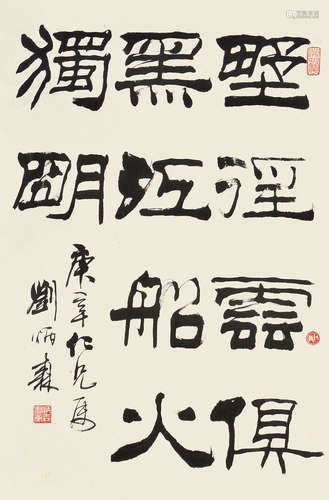 野徑雲俱
黑江船火
獨明
庚辛仁兄屬
劉炳森